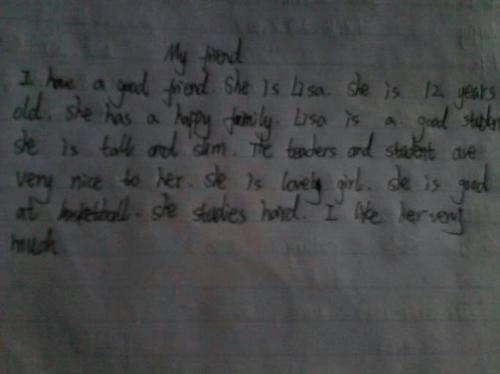 My friend
I have a good friend. She is Lisa. She is 12 years
old. She has a happy family. Lisa is a good student
she is tall and slim. The teachers and student are
very nice to her. she is lovely girl. she is good
at basketball. she studies hard. I like her very
much.